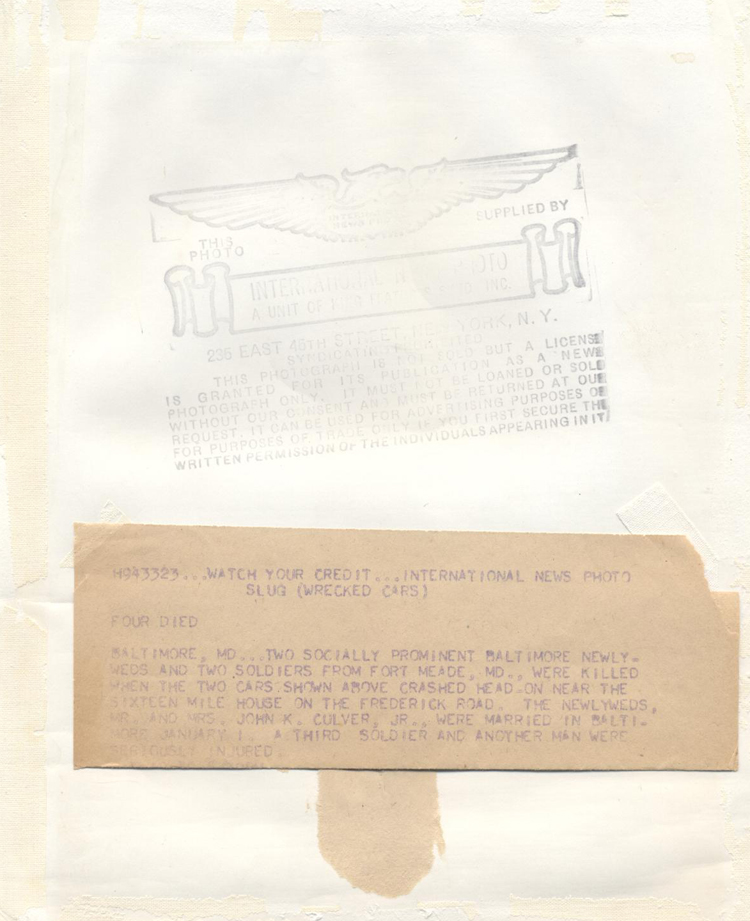 SUPPLIED BY
THIS
PHOTO
INTERNATIONAL NEWS PHOTO
A UNIT OF INC.
235 EAST 45TH STREET NEW YORK, N. Y.
SYNDICATE
THIS PHOTOGRAPH IS NOT SOLD BUT A LICENSE
IS GRANTED FOR ITS PUBLICATION AS A NEWS
PHOTOGRAPH ONLY. IT MUST NOT BE LOANED OR SOLD
WITHOUT OUR CONSENT AND MUST BE RETURNED AT OUR
REQUEST. IT CAN BE USED FOR ADVERTISING PURPOSES OR
FOR PURPOSES OF TRADE ONLY IF YOU FIRST SECURE THE
WRITTEN PERMISSION OF THE INDIVIDUALS APPEARING IN IT
H943323...WATCH YOUR CREDIT...INTERNATIONAL NEWS PHOTO
SLUG (WRECKED CARS)
FOUR DIED
BALTIMORE, MD...TWO SOCIALLY PROMINENT BALTIMORE NEWLY-
WEDS AND TWO SOLDIERS FROM FORT MEADE, MD., WERE KILLED
WHEN THE TWO CARS SHOWN ABOVE CRASHED HEAD-ON NEAR THE
SIXTEEN MILE HOUSE ON THE FREDERICK ROAD. THE NEWLYWEDS,
MR. AND MRS. JOHN K. CULVER, JR., WERE MARRIED IN BALTI-
MORE JANUARY 1. A THIRD SOLDIER AND ANOTHER MAN WERE
SERIOUSLY INJURED.